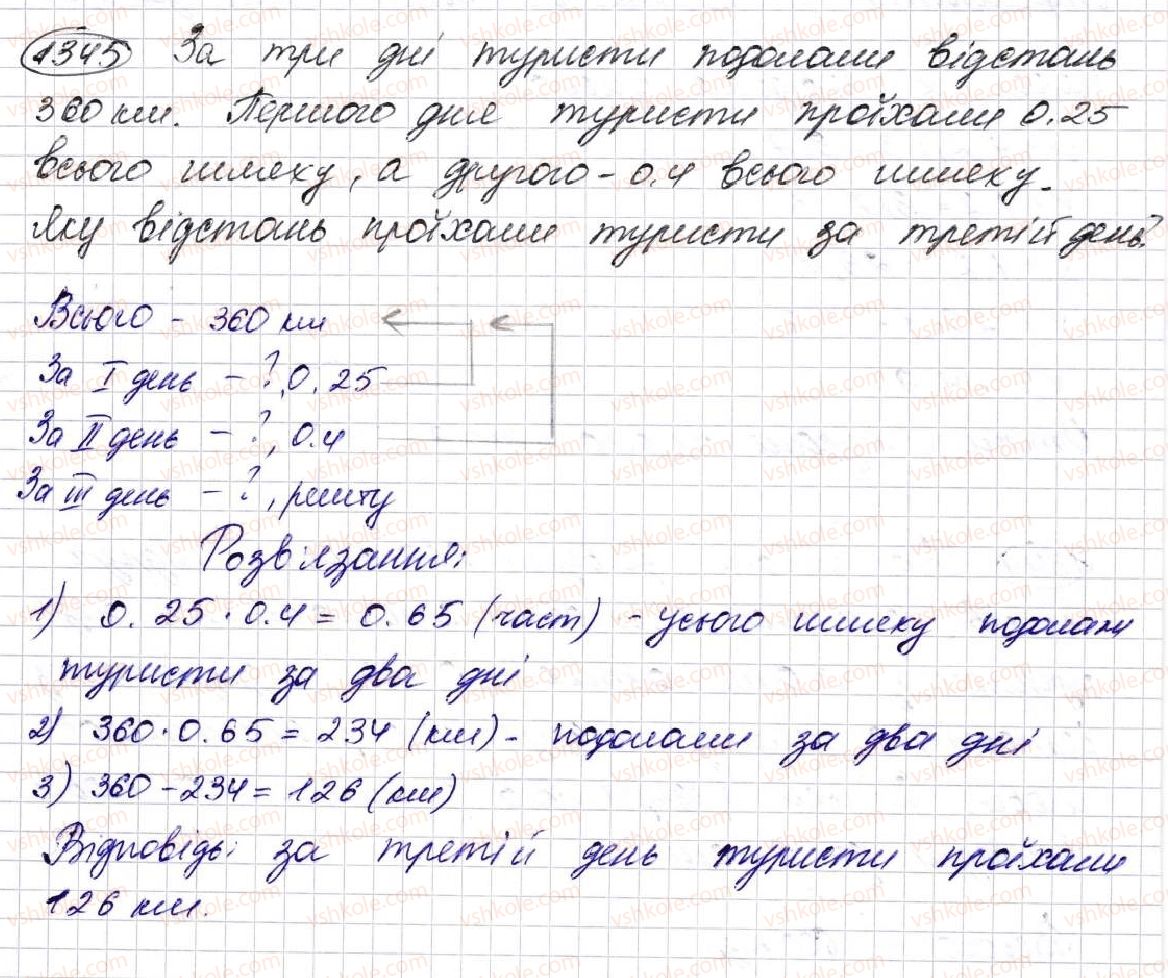 1345 За три дні туристи подолали відстань
360 км. Першого дня туристи проїхали 0.25
всього шляху, а другого - 0.4 всього шляху.
Яку відстань проїхали туристи за третій день?
Всього - 360 км
За I день - ?, 0.25
За II день - ?, 0.4
За III день - ?, решту
Розв'язання:
1) 0.25 · 0.4 = 0.65 (част) - усього шляху подолали
туристи за два дні
2) 360 · 0.65 = 234 (км) - подолали за два дні
3) 360 - 234 = 126 (км)
Відповідь: за третій день туристи проїхали
126 км.